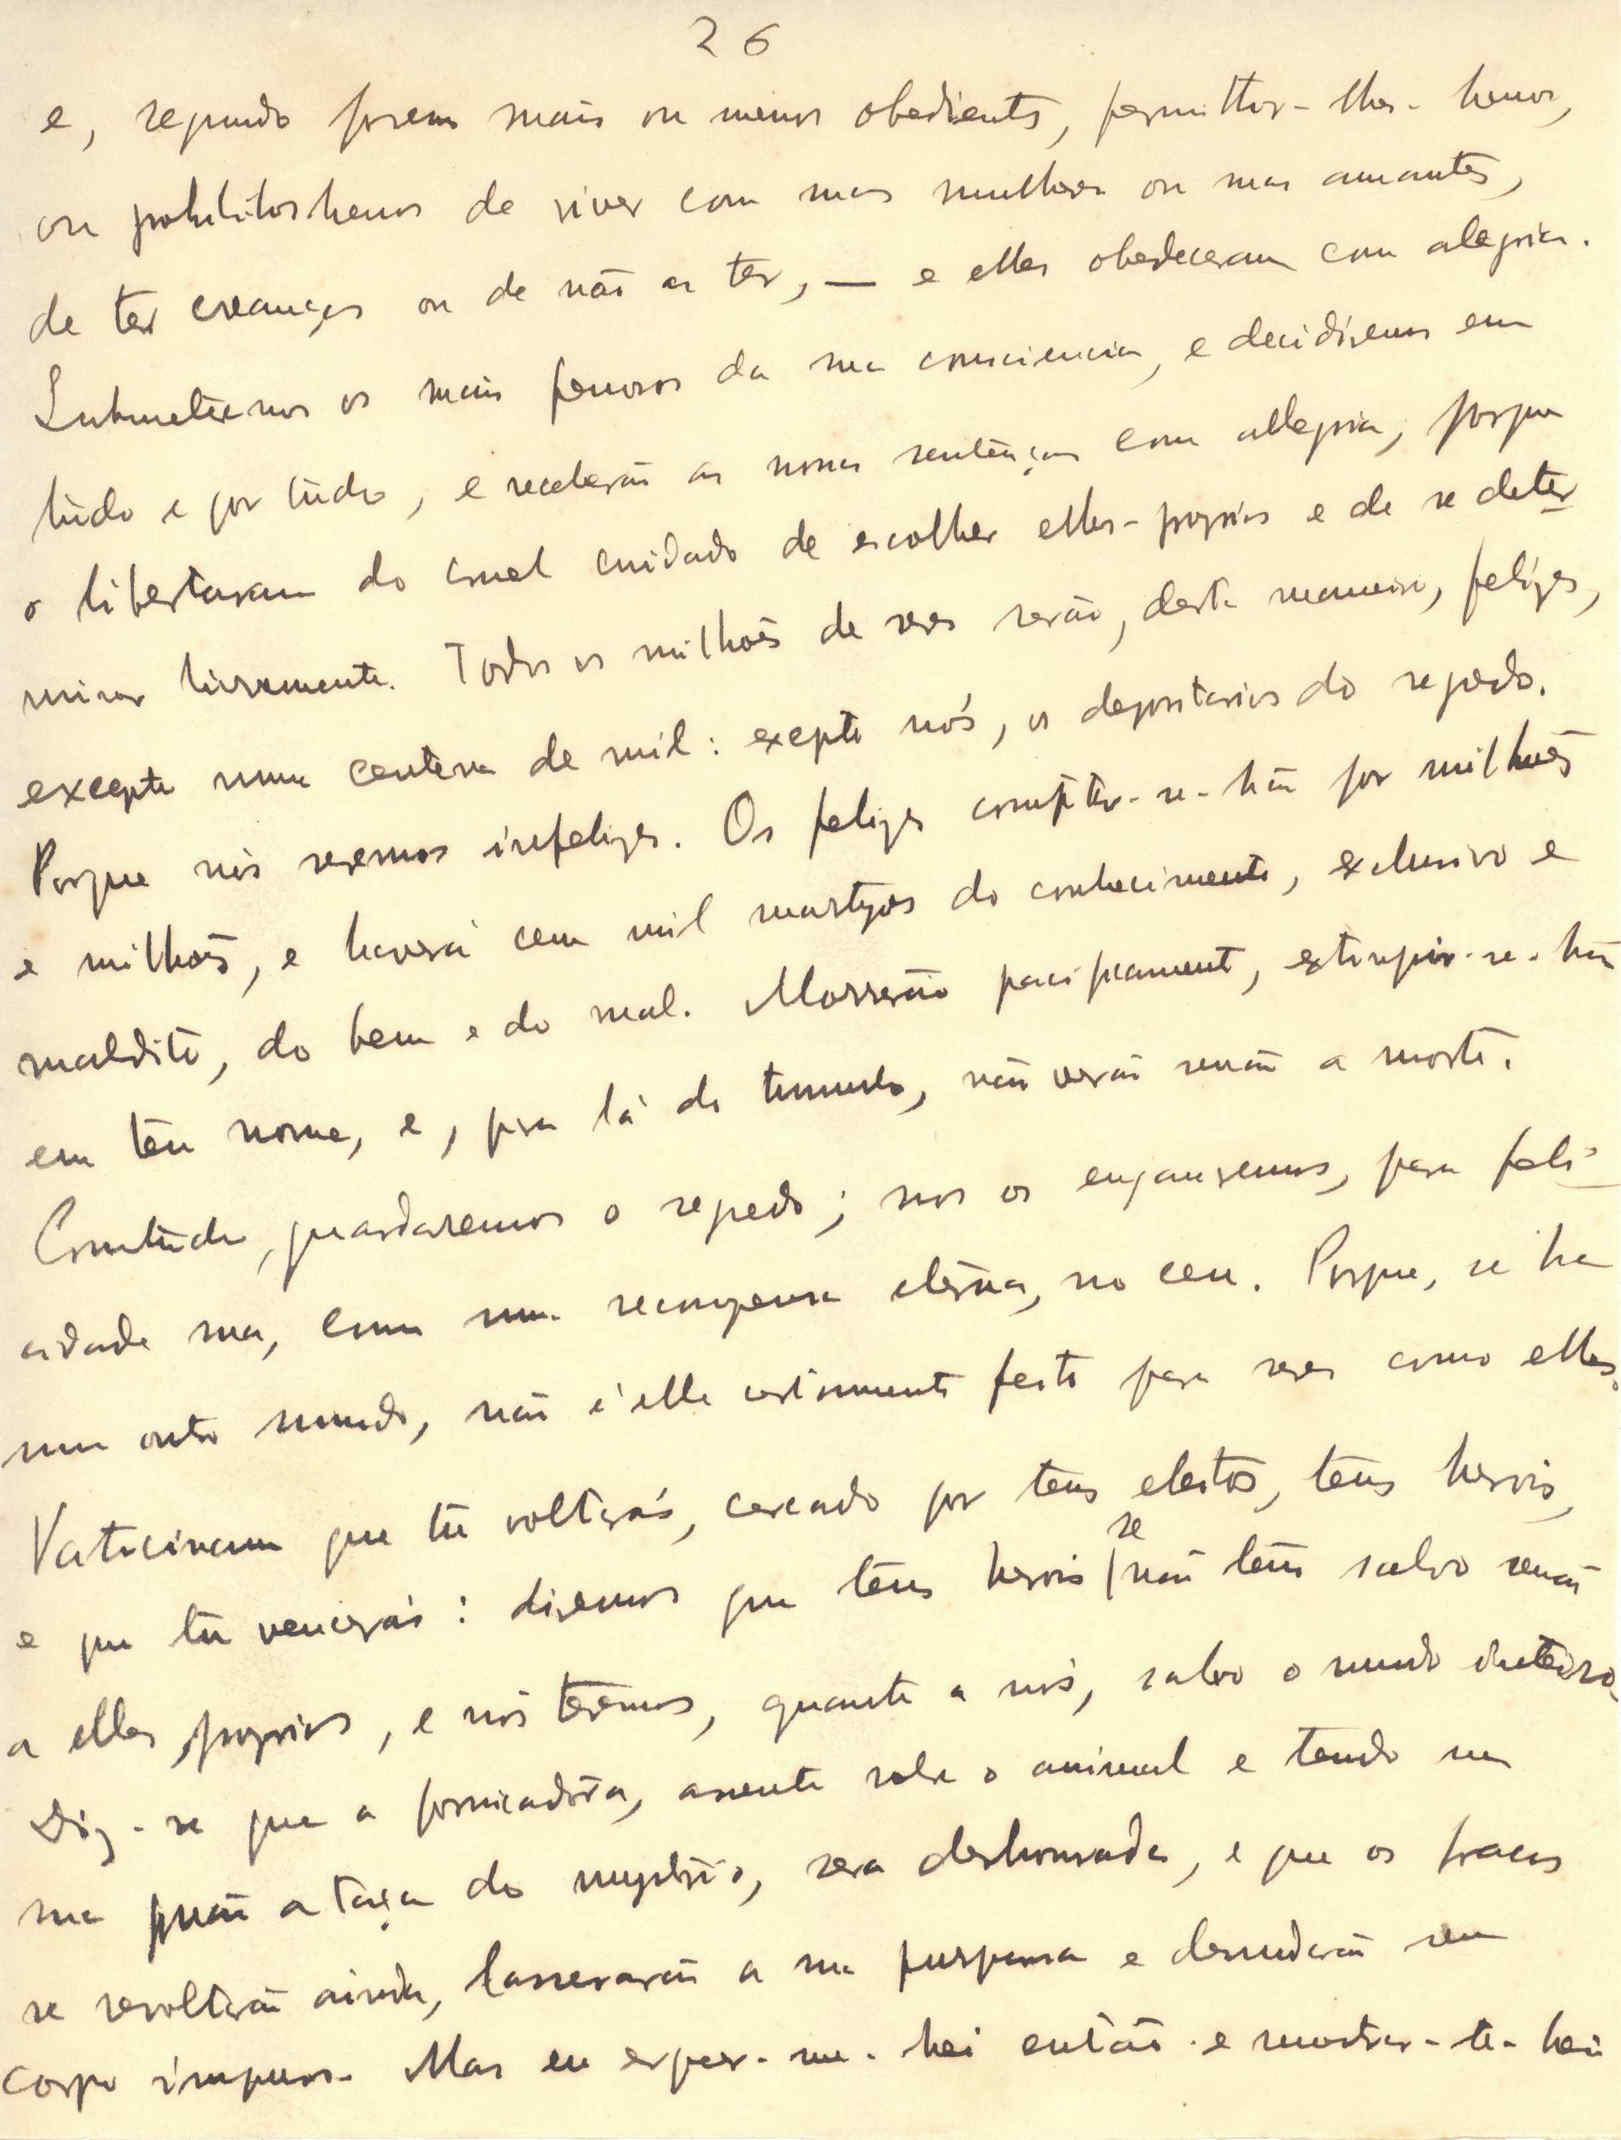 26
e, segundo forem mais ou menos obedientes, permittir-lhes-hemos,
ou prohibitoshemos de viver com suas mulheres ou suas amantes,
de ter creanças ou de não as ter, — e elles obedeceram com alegria.
Submeternos os mais penosos da sua consciencia, e decidiremos em
tudo e por tudo, e receberão as nossas sentenças com allegria, porque
o libertaram do cruel cuidado de escolher elles-proprios e de se deter
minar livremente. Todos os milhões de seres serão, desta maneira, felizes,
excepto uma centena de mil: excepto nós, os depositarios do segredo.
Porque nós seremos infelizes. Os felizes contar-se-hão por milhões
e milhões, e haverá cem mil martyres do conhecimento, exclusivo e
maldito, do bem e do mal. Morrerão pacificamente, extinguir-se-hão
em teu nome, e, pra lá do tumulo, não verão senão a morte.
Comtudo, guardaremos o segredo; nos os enganaremos, para feli-
cidade sua, com uma recompensa eterna, no ceu. Porque, se ha
um outro mundo, não é elle certamente feito para seres como elles.
Vaticinaram que tu voltarás, cercado por teus eleitos, teus herois,
e que tu vencerás: diremos que teus herois se não têm salvo senão
a elles proprios, e nós teremos, quanto a nós, salvo o mundo inteiro.
Diz-se que a fornicadora, assente sobre o animal e tendo na
sua mão a taça do mysterio, sera deshonrada, e que os fracos
se revoltarão ainda, lacerarão a sua purpura e desnudarão seu
corpo impuro. Mas eu erguer-me-hei então e mostrar-te-hei